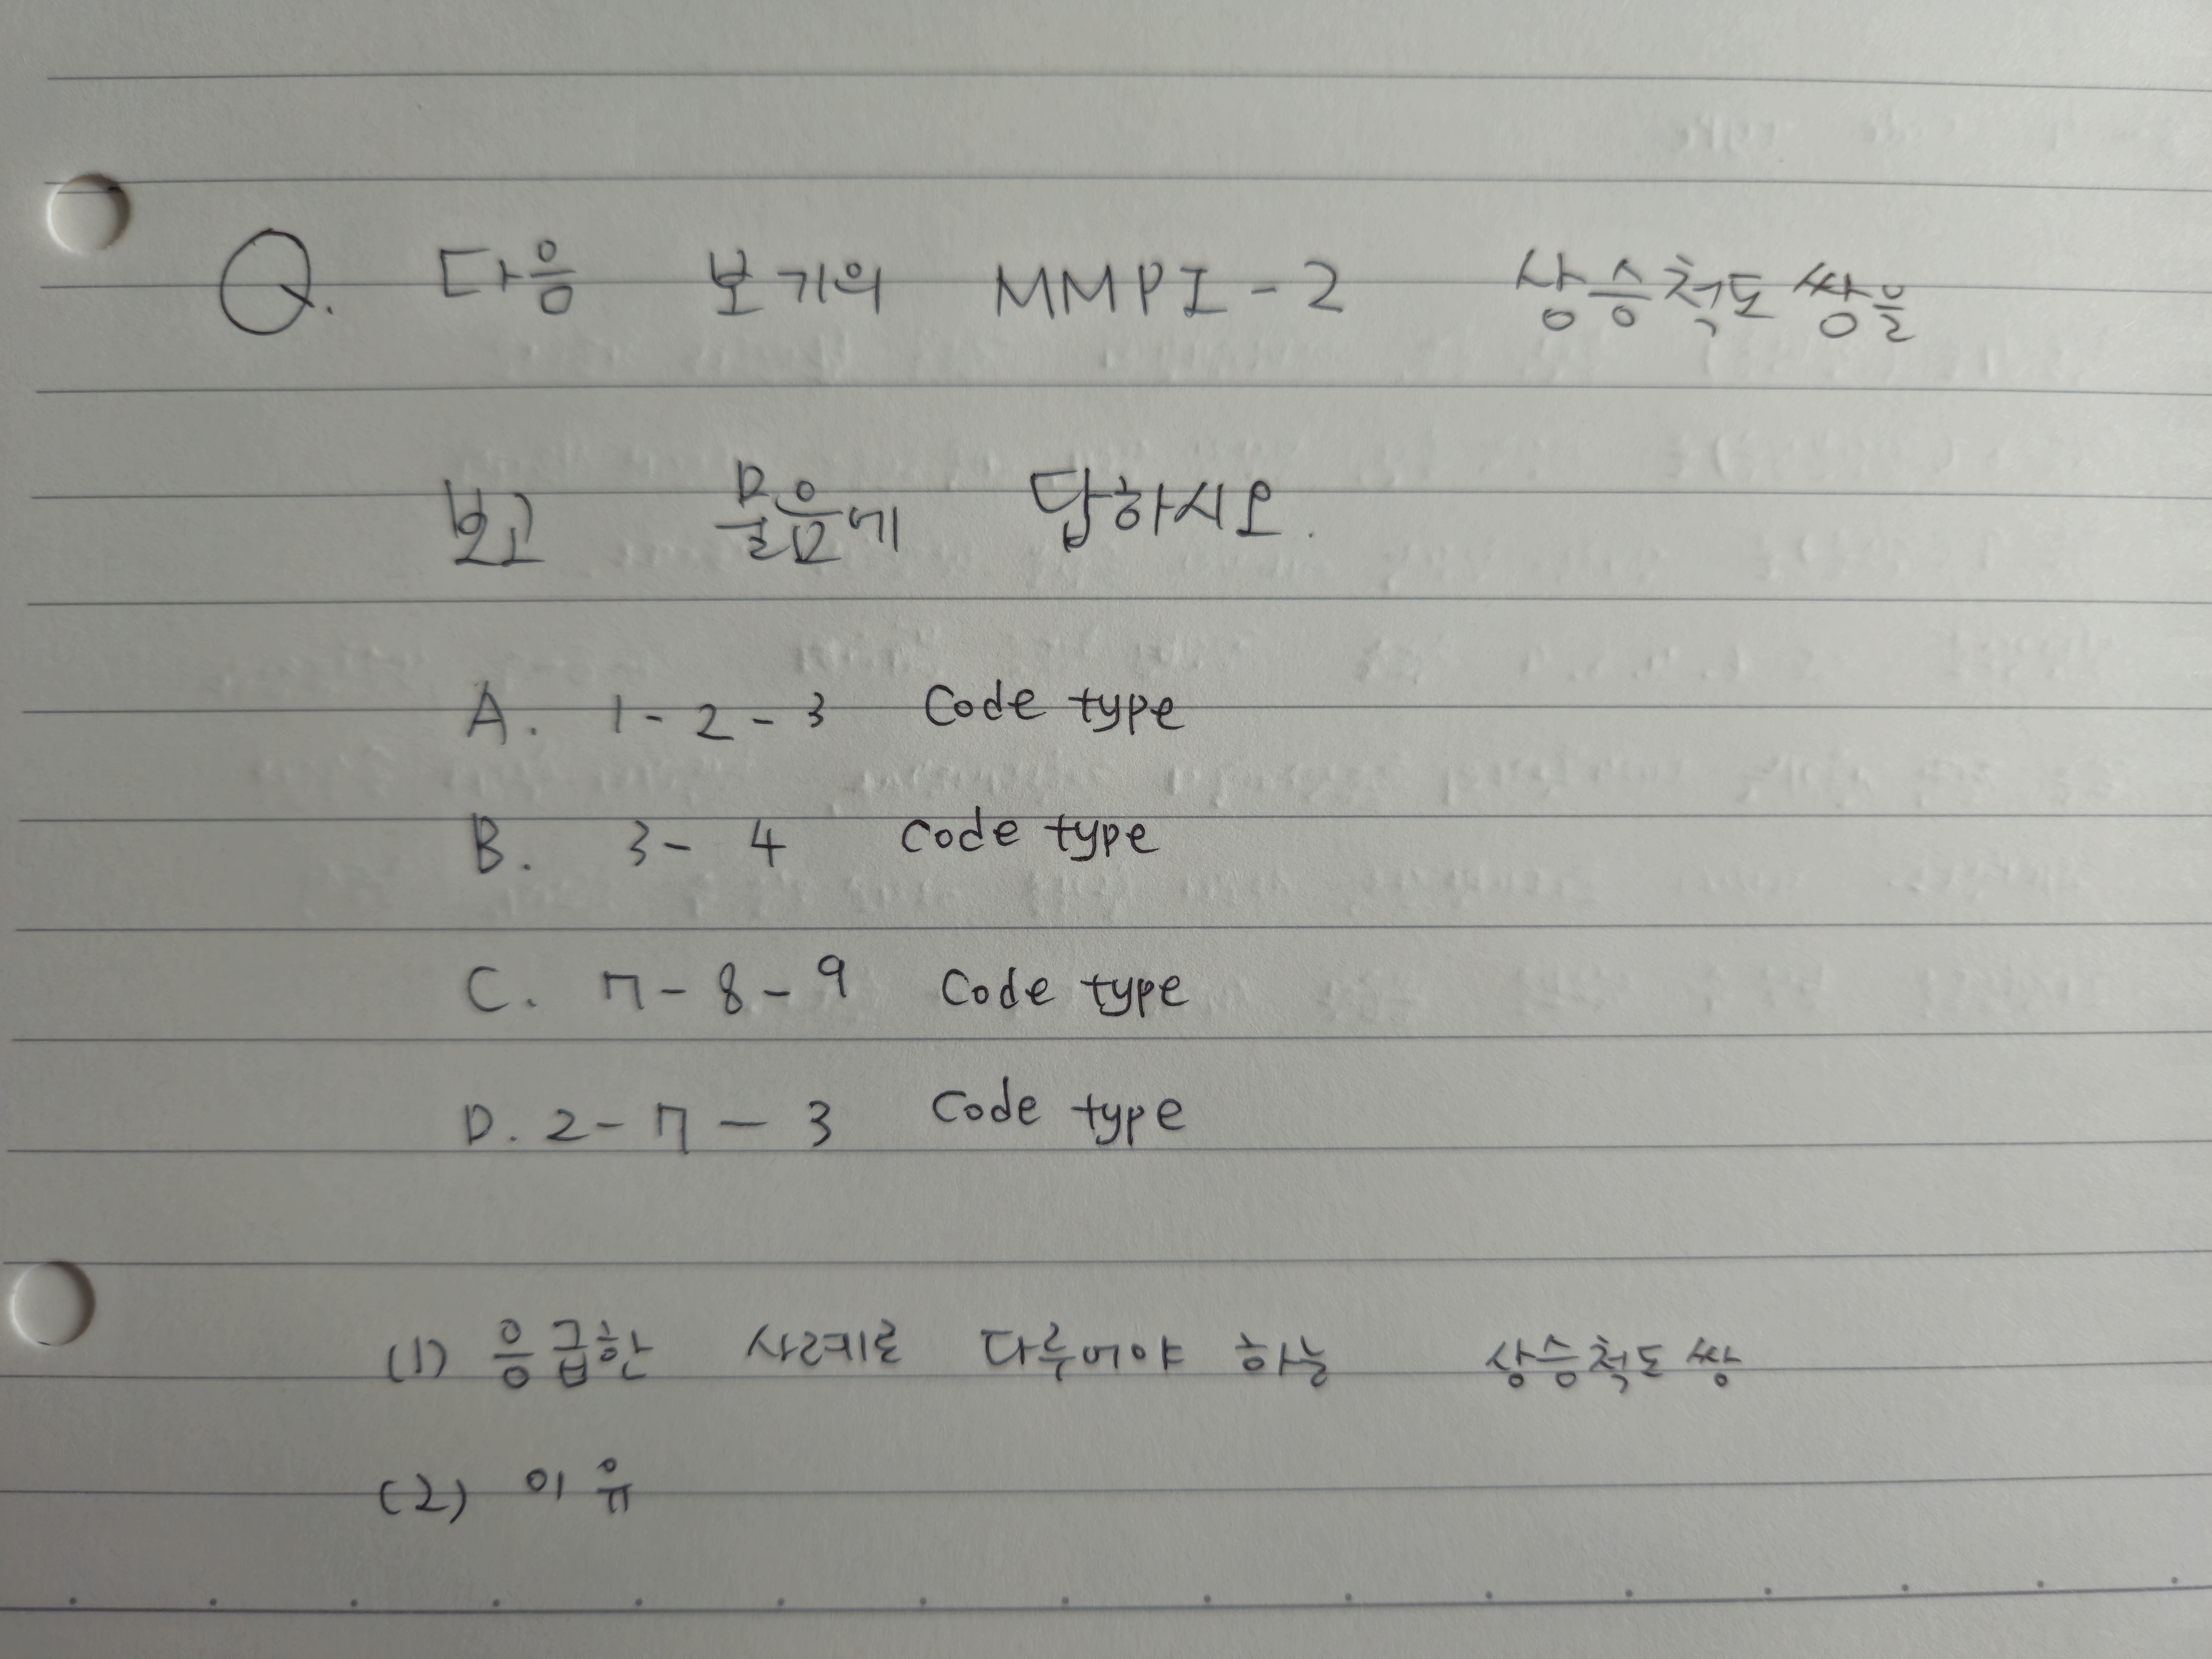 Q. 다음 보기의 MMPI-2 상승척도쌍을
보고 물음에 답하시오.
A. 1-2-3 Code type
B. 3-4 Code type
C. 7-8-9 Code type
D. 2-7-3 Code type
(1) 응급한 사례로 다루어야 하는 상승척도쌍
(2) 이유